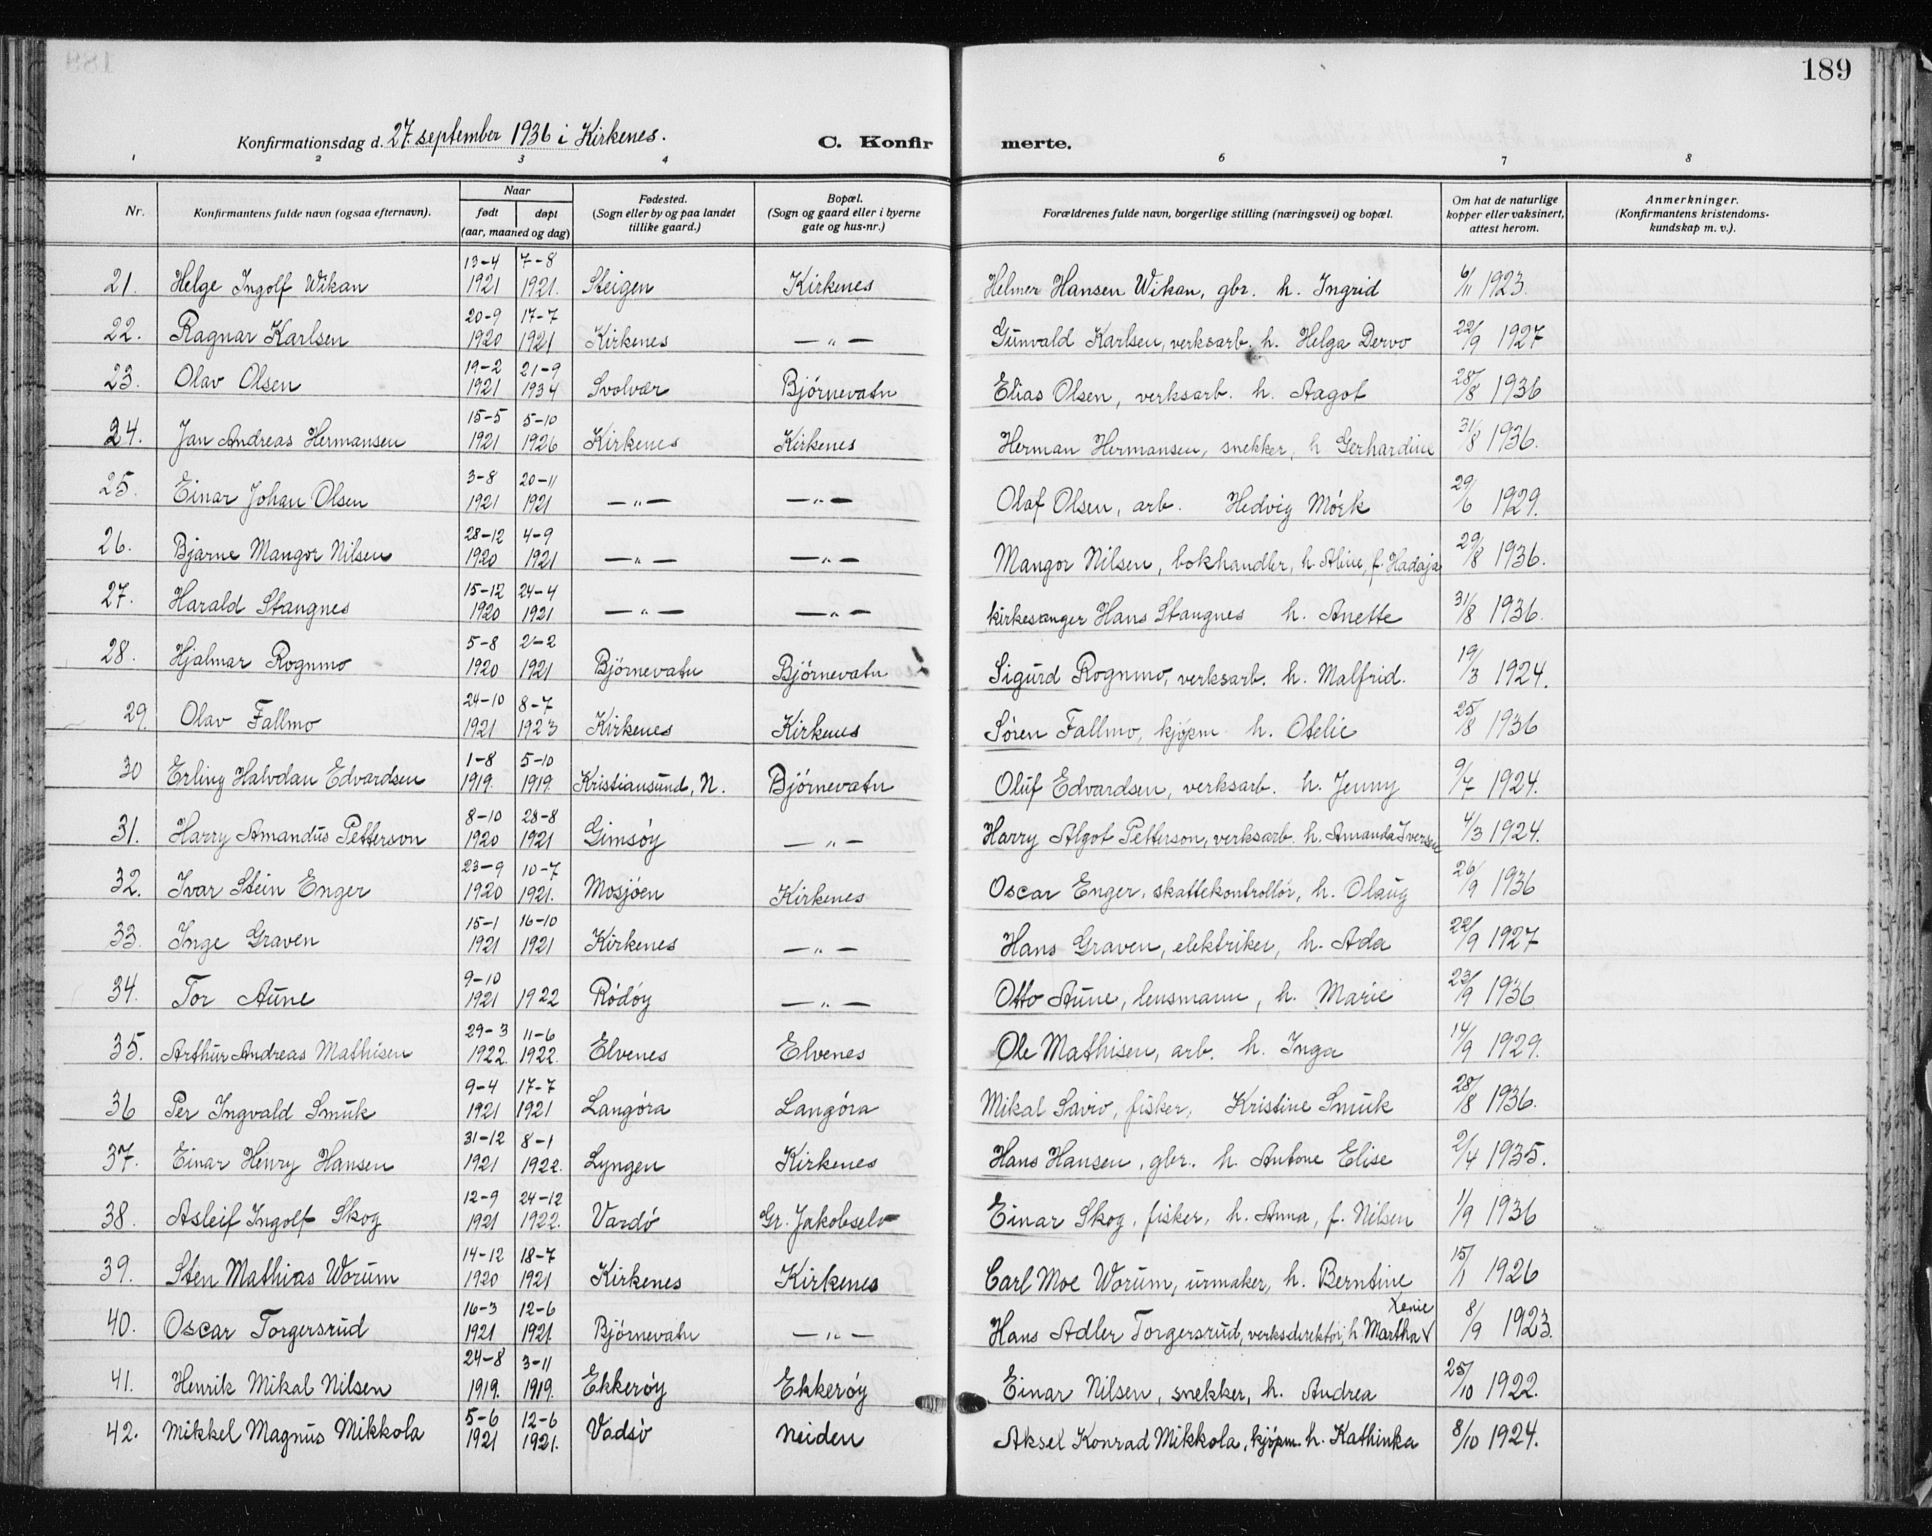 189
Konfirmationsdag d. 27. september 1936 i Kirkenes. C. Konfirmerte.
1 2 3 4 6 7 8
Nr. Konfirmantens fulde navn (ogsaa efternavn). Naar født døpt (aar, maaned og dag) Fødested. (Sogn eller by og paa landet tillike gaard.) Bopæl. (Sogn og gaard eller i byerne gate og hus-nr.) Forældrenes fulde navn, borgerlige stilling (næringsvei) og bopæl. Om hat de naturlige kopper eller vaksinert, attest herom. Anmerkninger. (Konfirmantens kristendoms-kundskap m. v.).
21. Helge Ingolf Wikan 13-4 1921 7-8 1921. Steigen Kirkenes Helmer Hansen Wikan, gbr. h. Ingrid 6/11 1923.
22. Ragnar Karlsen 20-9 1920 17-7 1921 Kirkenes — " — Gunvald Karlsen, verksarb. h. Helga Dervo 22/9 1927
23. Olav Olsen 19-2 1921 21-9 1934 Svolvær Bjørnevatn Elias Olsen, verksarb. h. Aagot 28/8 1936
24. Jan Andreas Hermansen 15-5 1921 5-10 1926 Kirkenes Kirkenes Herman Hermansen, snekker, h Gerhardine 31/8 1936.
25. Einar Johan Olsen 3-8 1921 20-11 1921 — " — — " — Olaf Olsen, arb. Hedvig Mørk 29/6 1929.
26. Bjarne Mangor Nilsen 28-12 1920 4-9 1921 — " — — " — Mangor Nilsen, bokhandler, h. Aline, f. Hadaja 29/8 1936.
27. Harald Stangnes 15-12 1920 24-4 1921 — " — — " — kirkesanger Hans Stangnes h. Anette 31/8 1936.
28. Hjalmar Rognmo 5-8 1920 2-2 1921 Bjørnevatn Bjørnevatn Sigurd Rognmo, verksarb. h. Malfrid. 19/3 1924.
29. Olav Fallmo 24-10 1921 8-7 1923 Kirkenes Kirkenes Søren Fallmo, kjøpm. h. Otelie 25/8 1936
30 Erling Halvdan Edvardsen 1-8 1919. 5-10 1919. Kristiansund, N. Bjørnevatn Oluf Edvardsen, verksarb. h. Jenny 9/7 1924.
31. Harry Amandus Petterson 8-10 1920 28-8 1921 Gimsøy — " — Harry Algot Petterson, verksarb. h. Amanda Iversen 4/3 1924.
32. Ivar Stein Enger 23-9 1920 10-7 1921. Mosjøen Kirkenes Oscar Enger, skattekontrollør, h. Olaug 26/9 1936
33. Inge Graven 15-1 1921 16-10 1921 Kirkenes — " — Hans Graven, elektriker, h. Ada 22/9 1927
34. Tor Aune 9-10 1921 1922 Rødøy — " — Otto Aune, lensmann, h. Marie 23/9 1936
35. Arthur Andreas Mathisen 29-3 1922. 11-6 1922. Elvenes Elvenes Ole Mathisen, arb. h. Inga 14/9 1929.
36 Per Ingvald Smuk 9-4 1921 17-7 1921 Langøra Langøra Mikal Savio, fisker, Kristine Smuk 28/8 1936.
37. Einar Henry Hansen 31-12 1921 8-1 1922. Lyngen Kirkenes Hans Hansen, gbr. h. Antone Elise 2/4 1935.
38. Asleif Ingolf Skog 12-9 1921 24-12 1922. Vardø Gr. Jakobselv Einar Skog, fisker, h. Anna, f. Nilsen 1/9 1936
39. Sten Mathias Worum 14-12 1920 18-7 1921 Kirkenes Kirkenes Carl Moe Worum, urmaker, h. Berntine 15/1 1926
40. Oscar Torgersrud 16-3 1921 12-6 1921 Bjørnevatn — " — Hans Adler Torgersrud, verksdirektør, h Martha Xenie 8/9 1923.
41. Henrik Mikal Nilsen 24-8 1919. 3-11 1919. Ekkerøy Ekkerøy Einar Nilsen, snekker, h. Andrea 25/10 1922.
42. Mikkel Magnus Mikkola 5-6 1921 12-6 1921. Vadsø Neiden Aksel Konrad Mikkola, kjøpm. h. Kathinka 8/10 1924.